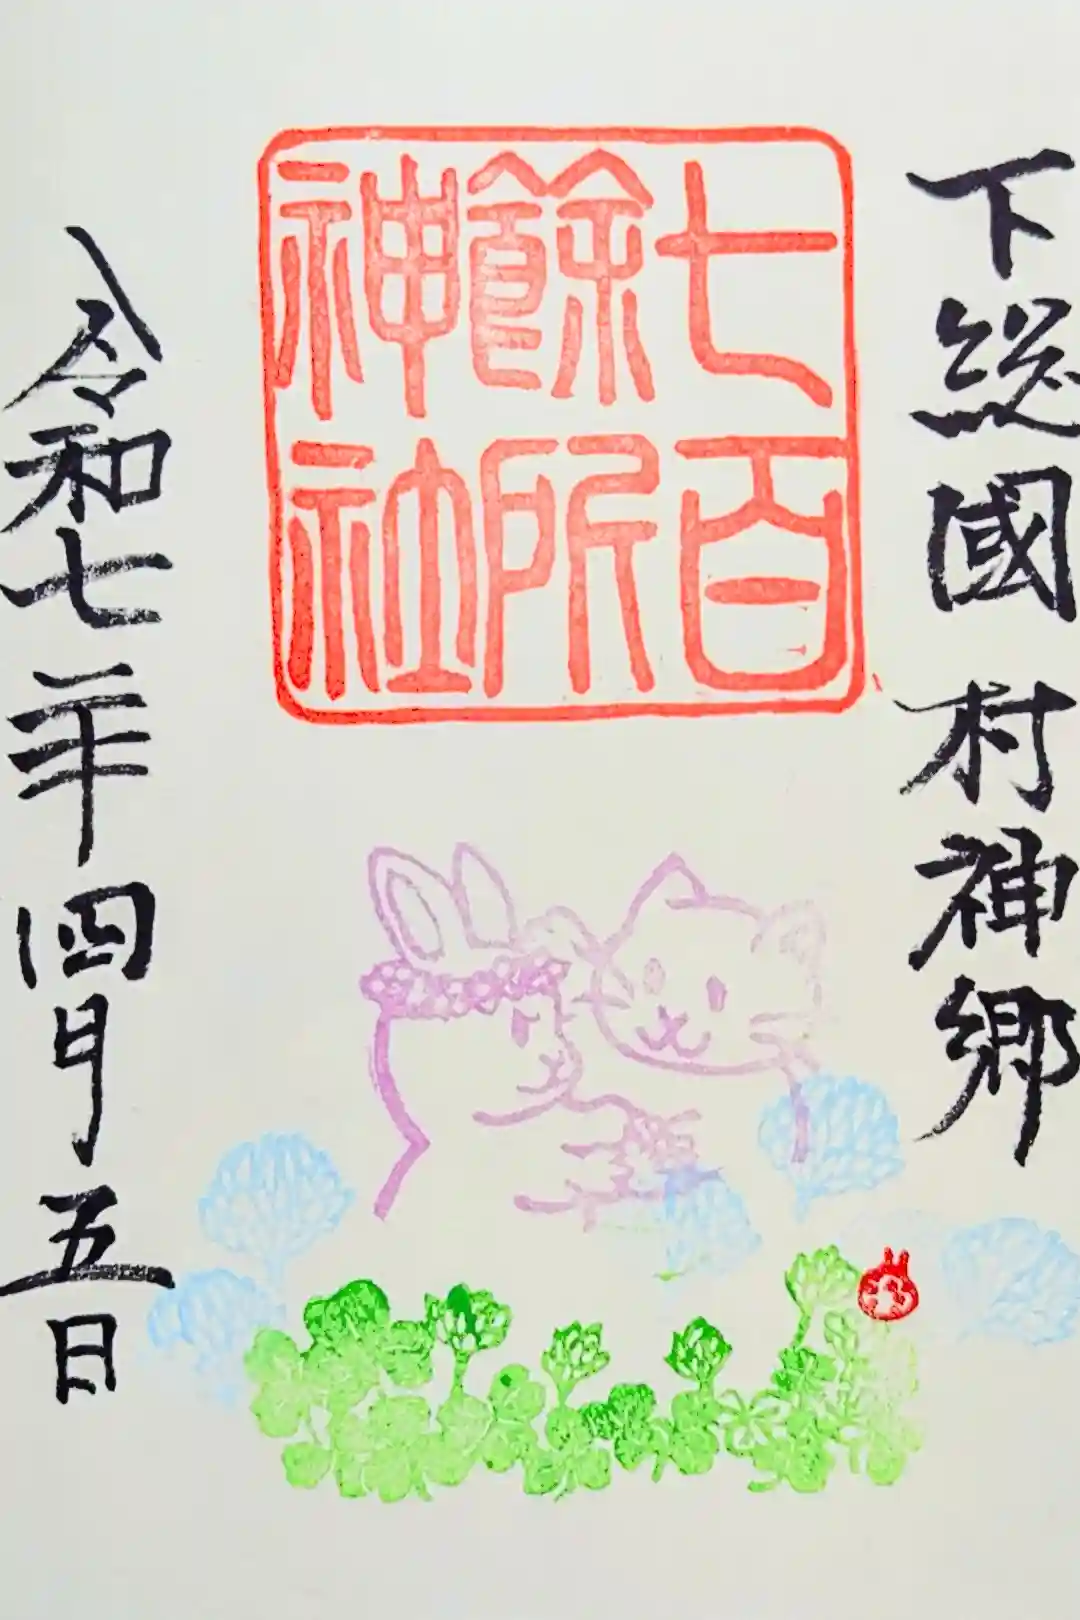 下総國村神郷
七百
餘所
神社
令和七年四月五日